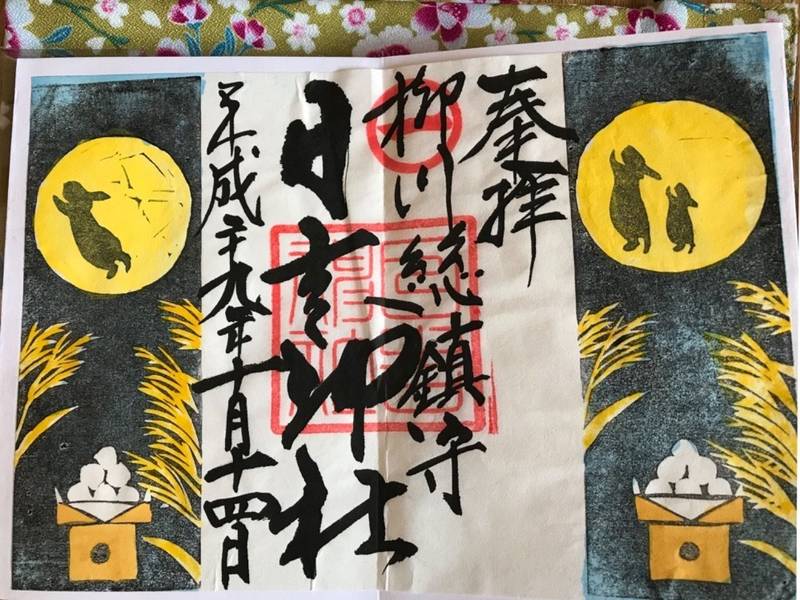 奉拝
柳川総鎮守
日吉神社
平成二十九年十月十四日